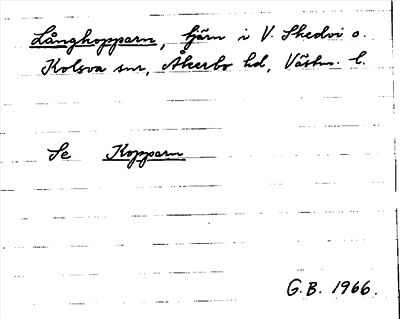 Långkopparn, tjärn i V. Skedvi o.
Kolsva snr, Åkerbo hd, Västm. l.
Se Kopparn
G.B. 1966.